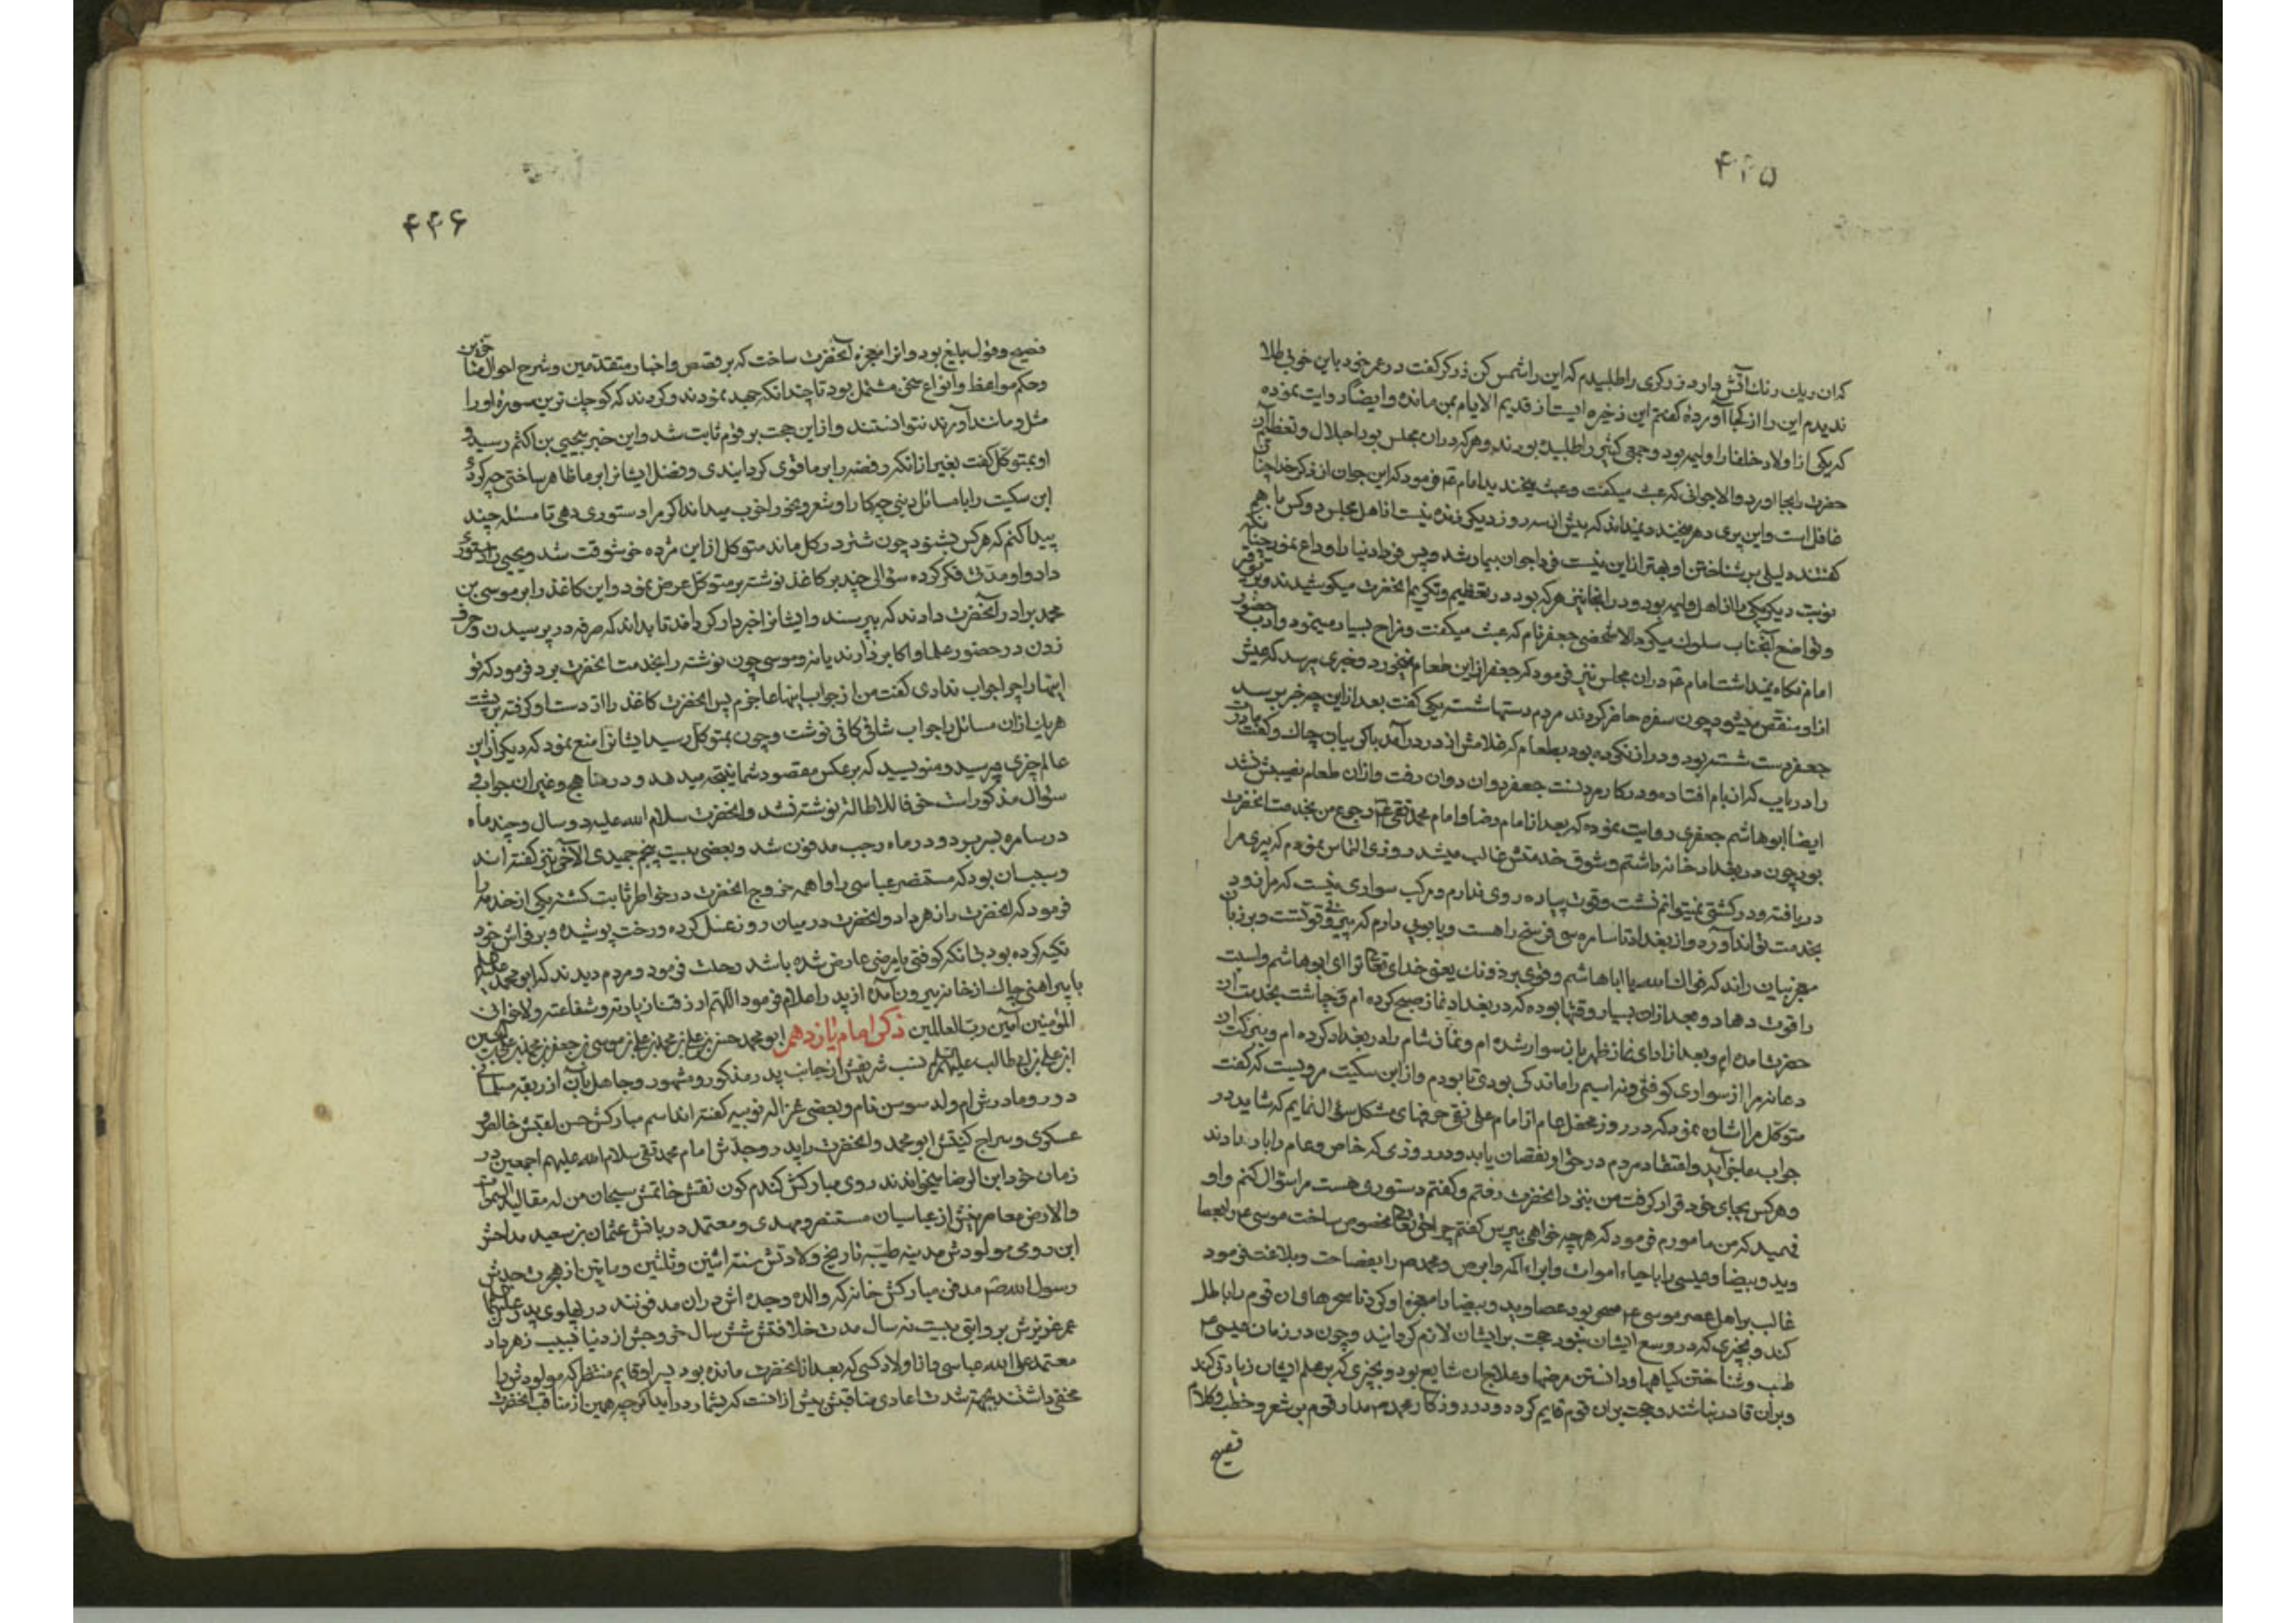 ۴۴۵
که ان ریك رنك آتش دارد زرکری را طلبیدم که این را شمس کن زرکر کفت در عمر خود باین خوبی طلا
ندیدم این را از کجا آوردهٔ کفتم این ذخیره ایست از قدیم الایام بمن مانده وایضا روایت نموده
که یکی از اولاد خلفا را ولیمه بود وجمعی کثیر را طلبیده بودند وهر که در ان مجلس بود اجلال وتعظیم آن
حضرت بجا اورد والا جوانی که عبث میکفت وعبث میخندید امام ع فرمود که این جوان از ذکر خدا چنان
غافل است واین پری دهر میخندد نمیداند که پیش از سه روز دیکر زنده نیست از اهل مجلس دو کس با هم
کفتند دلیلی بر شناختن او بهتر از این نیست فردا جوان بیمار شد وپس فردا دنیا را وداع نمود چنانکه
نوبت دیکر یکی را از اهل ولیمه بود ودر انجا نیز هر که بود در تعظیم وتکریم انحضرت میکوشیدند وبتوقیر
وتواضع آنجناب سلوك میکرد الا شخصی جعفر نام که عبث میکفت ومزاح بسیار مینمود وادب حضور
امام نکاه نمیداشت امام ع در ان مجلس نیز فرمود که جعفر از این طعام نمیخورد وخبری برسد که عیش
از او منقص میشود چون سفره حاضر کردند مردم دستها شستند یکی کفت بعد از این چه خبر برسد
جعفر دست شسته بود ودراز نکرده بود بطعام که غلامش از در درآمد با کریبان چاك وکفت مادرت
را دریاب که از بام افتاده ودر کار مردنست جعفر دوان دوان رفت وازان طعام نصیبش نشد
ایضا ابو هاشم جعفری روایت نموده که بعد از امام رضا وامام محمد تقی ع رجوع من بخدمت انحضرت
بود چون در بغداد خانه داشتم وشوق خدمتش غالب میشد روزی التماس نمودم که پیری مرا
دریافته ودر کشتی نمیتوانم نشست وقوت پیاده روی ندارم ومرکب سواری نیست که مرا زود
بخدمت تواند آورد واز بغداد تا سامره سی فرسخ راهست ویابویی دارم که پیر وبی قوتست وبر زبان
معجز نیان راند که قواك الله یا ابا هاشم وقوی برذونك یعنی خدای تعالی ترا ای ابو هاشم واسب
را قوت دهاد ومجد ازان بسیار وقتها بوده که در بغداد نماز صبح کرده ام وچاشت بخدمت ان
حضرت امده ام وبعد از ادای نماز ظهر باز سوار شده ام ونماز شام را در بغداد کرده ام وببرکت ان
دعا نه مرا از سواری کوفتی ونه اسبم را ماندکی بودی تا بودم واز ابن سکیت مرویست که کفت
متوکل مرا اشاره نمود که در روز محفل عام از امام علی نقی حرفهای مشکل سؤال نمایم که شاید در
جواب عاجز آید واعتقاد مردم در حق او نقصان یابد ودر روزی که خاص وعام را بار دادند
وهر کس بجای خود قرار کرفت من نزد انحضرت رفتم وکفتم دستوری هست مرا سؤال کنم واو
فهمید که من مامورم فرمود که هر چه خواهی بپرس کفتم چرا حق تعالی مخصوص ساخت موسی ع را بعصا
وید وبیضا وعیسی را باحیاء اموات وابراء اکمه وابرص ومحمد ص را بفصاحت وبلاغت فرمود
غالب بر اهل عصر موسی ع سحر بود عصا وید وبیضا را معجزه او کرد تا سحرها وان قوم را باطل
کند وبچیزی که در وسع ایشان نبود حجت بر ایشان لازم کردانید وچون در زمان عیسی ع
طب وشناختن کیاهها ودانستن مرضها وعلاج ان شایع بود وبچیزی که بر علم ایشان زیادتی کند
وبر آن قادر نباشند وحجت بران قوم قایم کردد ودر روزکار محمد ص مدار قوم بر شعر وخطب وکلام
فصیح
۴۴۶
فصیح وقول بلیغ بود وانرا معجزه آنحضرت ساخت که بر قصص واخبار متقدمین وشرح احوال متاخرین
وحکم ومواعظ وانواع سخن مشتمل بود تا چندانکه جهد نمودند وکردند که کوچك ترین سورهٔ او را
مثل ومانند آورند نتوانستند وازاین حجت بر قوم ثابت شد واین خبر بیحیی بن اکثم رسید و
او بمتوکل کفت بغیر از انکه رفضه را بر ما قوی کردانیدی وفضل ایشانرا بر ما ظاهر ساختی چه کردی
ابن سکیت را با مسائل دینی چه کار او شعر ونحو را خوب میداند اکر مرا دستوری دهی تا مسئله چند
پیدا کنم که هر کس بشنود چون شتر در کل ماند متوکل از این مژده خوشوقت شد ویحیی را دستوری
داد واو مدتی فکر کرده سؤالی چند بر کاغذ نوشته بر متوکل عرض نمود واین کاغذ را بر موسی بن
محمد برادر آنحضرت دادند که بپرسند وایشانرا خبردار کرداند تا بداند که صرفه در پرسیدن وحرف
زدن در حضور علما واکابر دارند یا نه وموسی چون نوشته را بخدمت انحضرت برد فرمود که تو
اینها را چرا جواب ندادی کفت من از جواب اینها عاجزم پس انحضرت کاغذ را از دست او کرفته بر پشت
هر یك ازان مسائل را جواب شافی کافی نوشت وچون بمتوکل رسید ایشانرا منع نمود که دیکر از این
عالم چیزی مپرسید ومنویسید که بر عکس مقصود شما نتیجه میدهد ودر مناهج وغیر ان جواب
سؤال مذکور است خوفا للاطالة نوشته نشد وانحضرت سلام الله علیه دو سال وچند ماه
در سامره بسر برد ودر ماه رجب مدفون شد وبعضی بیست پنجم جمیدی الآخر نیز کفته اند
وسبب ان بود که مستنصر عباسی را واهمه خروج انحضرت در خواطر ثابت کشته یکی از خدمه را
فرمود که انحضرت را زهر داد وانحضرت در میان روز غسل کرده ورخت پوشیده وبر فراش خود
تکیه کرده بود بی انکه کوفتی یا مرضی عارض شده باشد رحلت فرمود ومردم دیدند که ابو محمد علیه السلام
با پیراهن چاك از خانه بیرون آمده از پدر اعلام فرمود اللهم ارزقنا زیارته وشفاعته ولاخوانی
المؤمنین آمین رب العالمین ذکر امام یازدهم ابو محمد حسن بن علی بن محمد بن علی بن موسی بن جعفر بن محمد بن علی بن الحسین
ابن علی بن ابی طالب علیهم السلم نسب شریفش از جانب پدر مذکور ومشهور وجاهل بآن از ربقه مسلمانی
دور ومادرش ام ولد سوسن نام وبعضی غزاله نوبیه کفته اند اسم مبارکش حسن لقبش خالص و
عسکری وسراج کنیتش ابو محمد وانحضرت را پدر وجدش امام محمد تقی سلام الله علیهم اجمعین در
زمان خود ابن الرضا میخواندند روی مبارکش کندم کون نقش خاتمش سبحان من له مقالید السموات
والارض معاصرینش از عباسیان مستنصر ومهدی ومعتمد دربانش عثمان بن سعید مداحش
ابن رومی مولودش مدینه طیبه تاریخ ولادتش سنه اثنین وثلثین ومایتین از هجرت جدش
رسول الله ص مدفن مبارکش خانه که والده وجده اش دران مدفونند در پهلوی پدر علیهما
عمر عزیزش بروایتی بیست نه سال مدت خلافتش شش سال خروجش از دنیا بسبب زهر داد
معتمد علی الله عباسی واز اولاد کسی که بعد از انحضرت مانده بود پسر او قایم منتظر که مولود او را
مخفی داشتند بجهة شدت اعادی مناقبش بیش از انست که بشمار دراید اکر چه همین از مناقب انحضرت